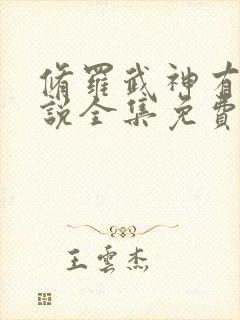 脩羅武神有
說全集免費
王雲杰